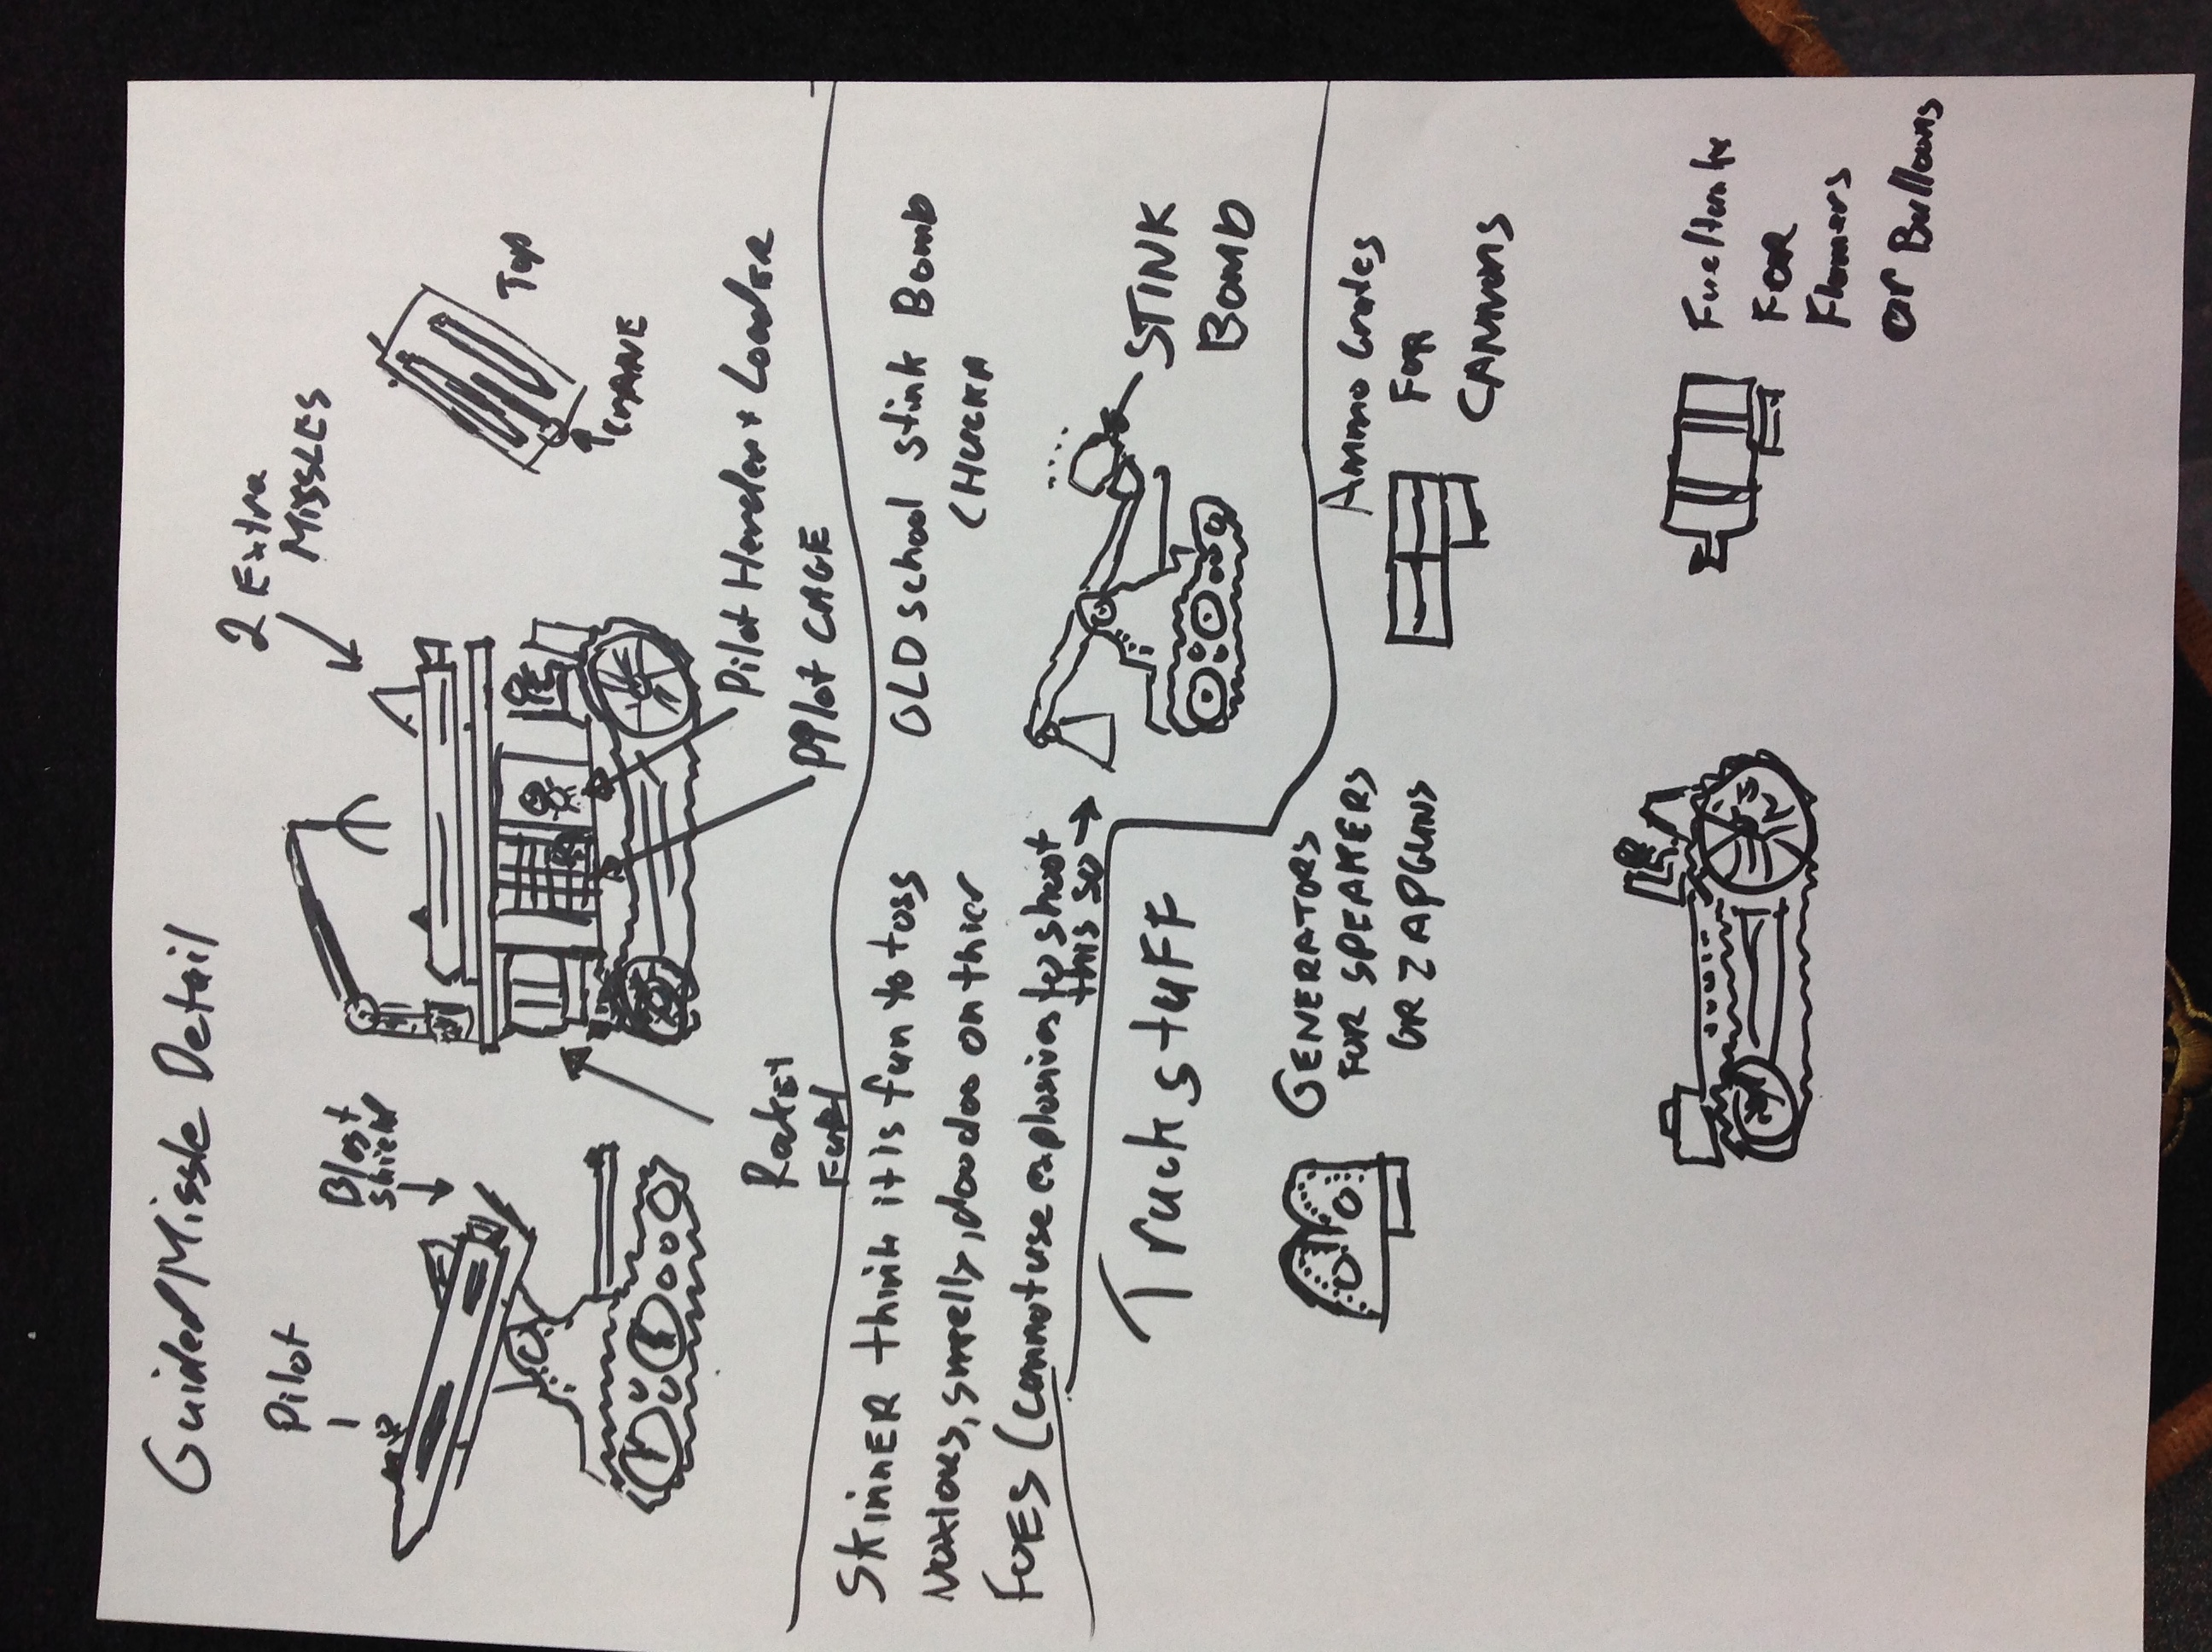 Guided Missle Detail
Pilot
Blast
shield
2 Extra
MissLES
Top
CRANE
Pilot Hander + Loader
PPilot CAGE
Roket
Fuel
SkinnER think it is fun to toss
Noxious, smelly, doodoo on thier
foES (cannot use explosives to shoot
this so →
OLD school stink Bomb
CHUCKA
STINK
Bomb
Truck stuFF
GENERATORS
FOR SPEAKERS
OR ZAPGUNS
Ammo Crates
FOR
CANNONS
Fueltanks
FOR
Flamers
or Ballons